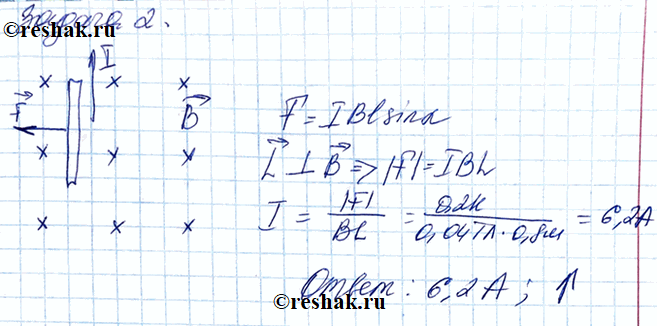 Задача 2.
©reshak.ru
I
x x x
F B
x x x
x x x
F = IBl sinα
L ⊥ B => |F| = IBL
I = |F| / BL = 0,2Н / 0,04Тл · 0,8м = 6,2А
Ответ: 6,2А; ↑
©reshak.ru
©reshak.ru